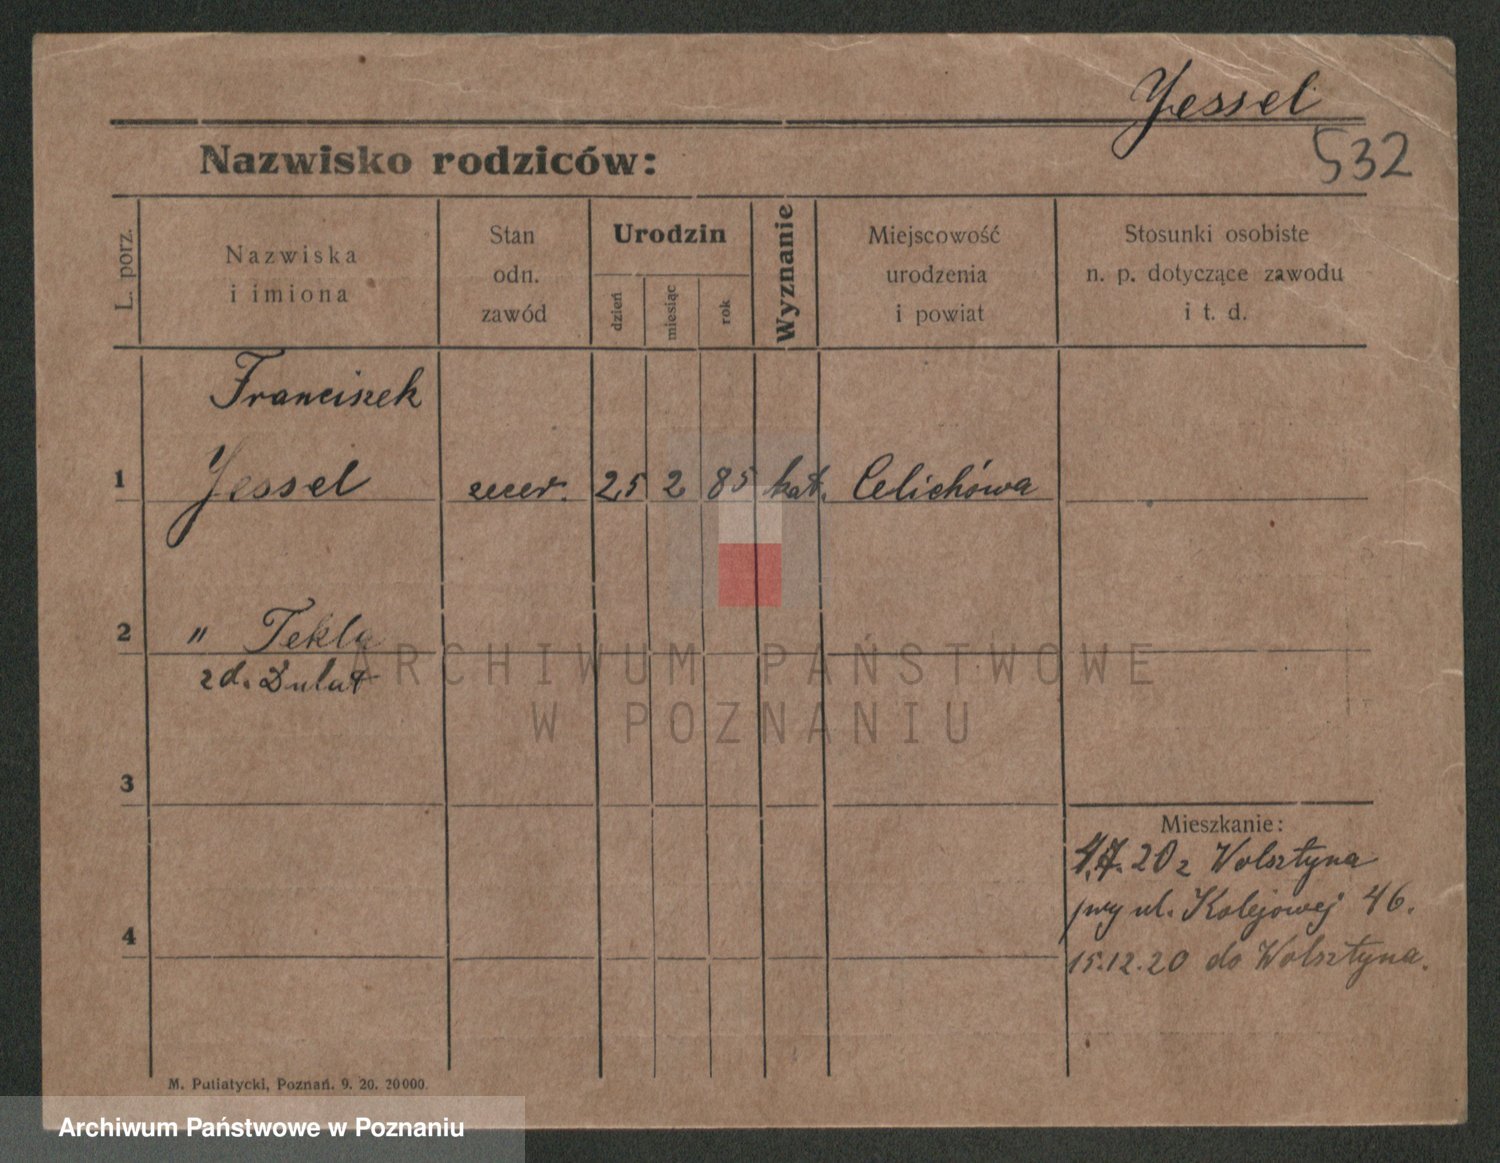 Yessel
532
Nazwisko rodziców:
L. porz.
Nazwiska
i imiona
Stan
odn.
zawód
Urodzin
dzień
miesiąc
rok
Wyznanie
Miejscowość
urodzenia
i powiat
Stosunki osobiste
n. p. dotyczące zawodu
i t. d.
Franciszek
1 Yessel 25 2 85 kat. Celichówa
2 " Tekla
zd. Dulat
3
Mieszkanie:
20 z Wolsztyna
przy ul. Kolejowej 46.
4
15.12.20 do Wolsztyna.
M. Putiatycki, Poznań. 9. 20. 20000.
ARCHIWUM PAŃSTWOWE
W POZNANIU
Archiwum Państwowe w Poznaniu